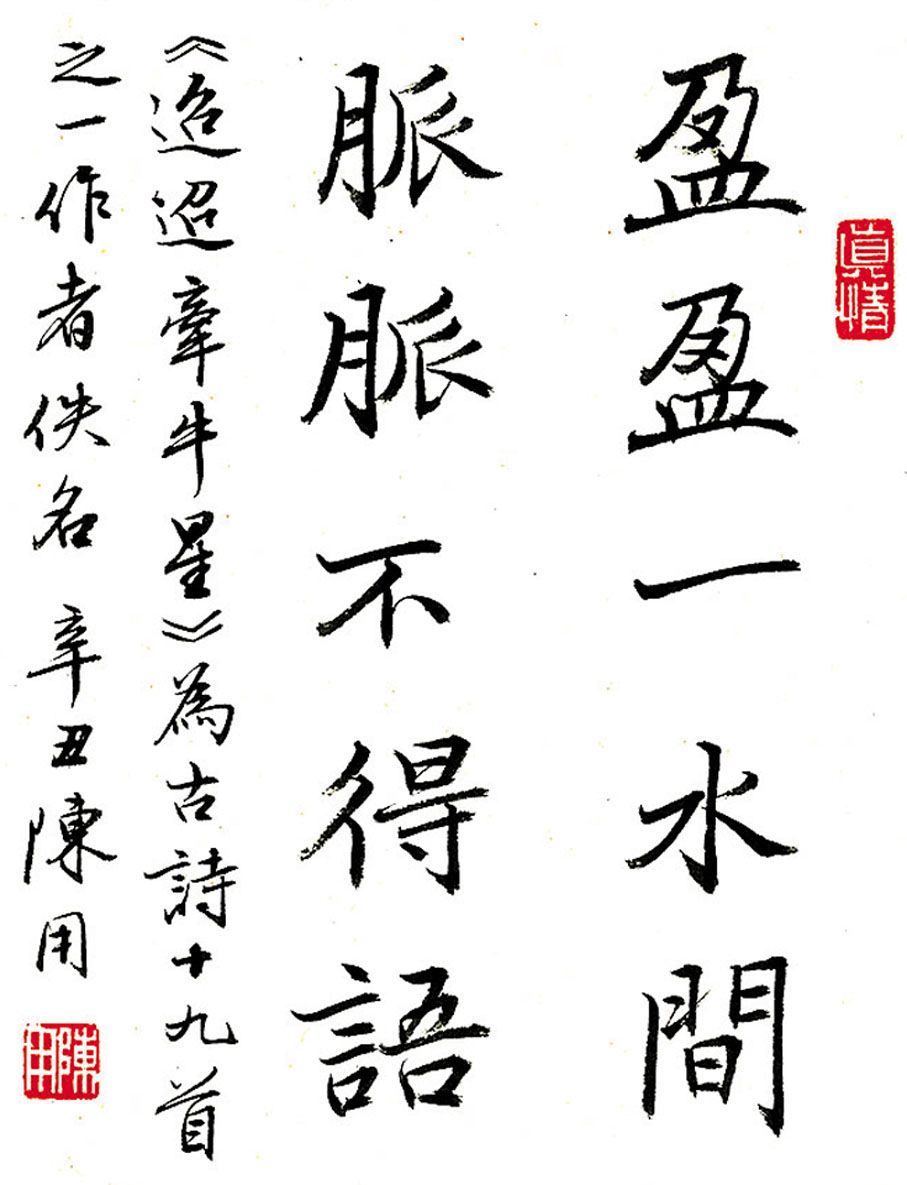 盈盈一水間
脈脈不得語
《迢迢牽牛星》為古詩十九首
之一作者佚名 辛丑陳用
真情
陳用